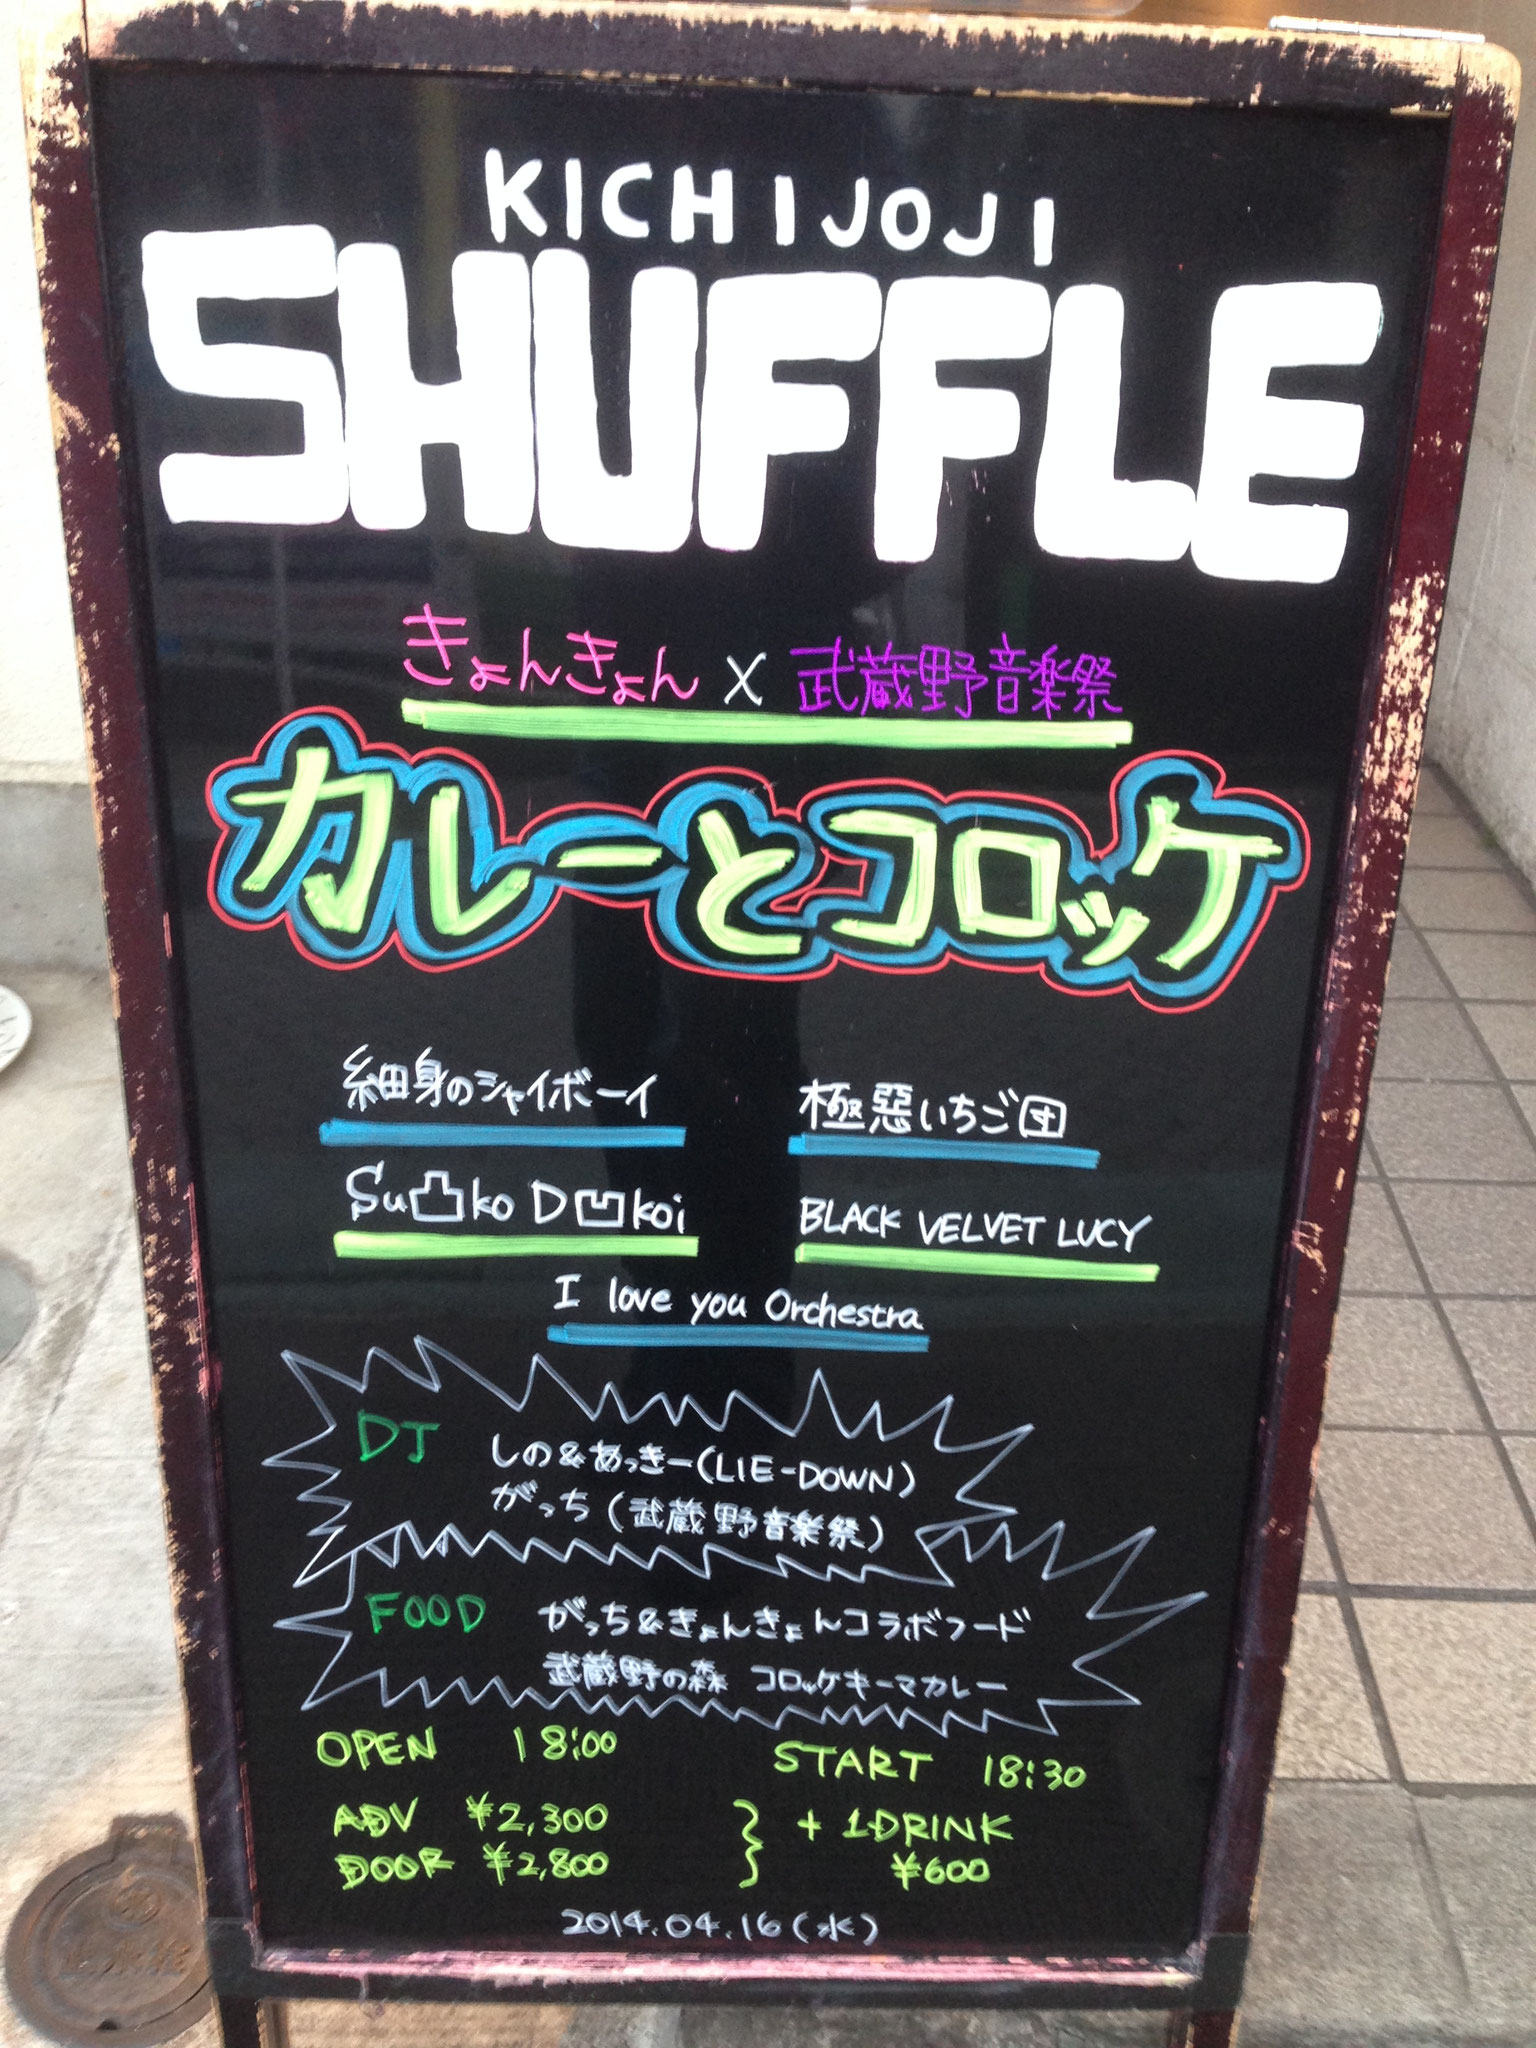 KICHIJOJI
SHUFFLE
きょんきょん X 武蔵野音楽祭
カレーとコロッケ
細身のシャイボーイ
極惡いちご団
Su凸ko D凹koi
BLACK VELVET LUCY
I love you Orchestra
DJ しの&あっきー(LIE-DOWN)
がっち(武蔵野音楽祭)
FOOD がっち&きょんきょんコラボフード
武蔵野の森 コロッケキーマカレー
OPEN 18:00 START 18:30
ADV ¥2,300 } + 1DRINK
DOOR ¥2,800 } ¥600
2014.04.16(水)